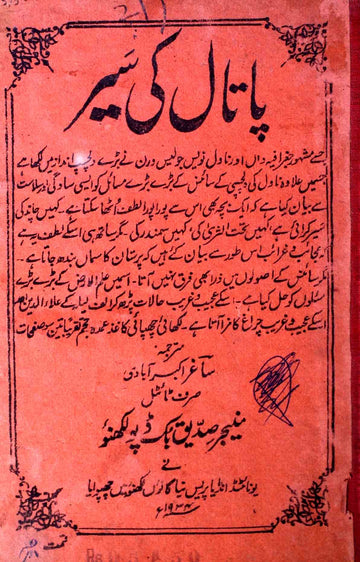 پاتال کی سیر
جسے مشہور جغرافیہ داں اور ناول نویس جولیس ورن نے بڑے دلچسپ انداز میں لکھا ہے
جسمیں علاوہ ناول کی دلچسپی کے سائنس کے بڑے بڑے مسائل کو ایسی سادگی و سلاست
سے بیان کیا ہے کہ ایک بچہ بھی اس سے پورا پورا لطف اُٹھا سکتا ہے۔ کہیں چاند کی
سیر کرائی ہے کہیں تحت الثریٰ کی کہیں سمندر کی۔ مگر ساتھ ہی اسکے لطف یہ ہے
کہ عجائب و غرائب اس طور سے بیان کئے ہیں کہ پرستان کا سماں بندھ جاتا ہے۔
مگر سائنس کے اصولوں میں ذرا بھی فرق نہیں آتا۔ اسمیں علم الارض کے بڑے بڑے
مسئلوں کو حل کیا ہے۔ اسکے عجیب و غریب حالات پڑھ کر الف لیلہ کے علاؤالدین
اسکے عجیب و غریب چراغ کا مزا آتا ہے۔ لکھائی چھپائی کاغذ عمدہ حجم تقریباً تین سو صفحات
مترجمہ
ساغر اکبر آبادی
صرف ٹائٹل
منیجر صدیق بک ڈپو لکھنؤ
نے
یونائیٹڈ انڈیا پریس نیا گاؤں لکھنؤ میں چھپوایا
۱۹۳۴ء
قیمت